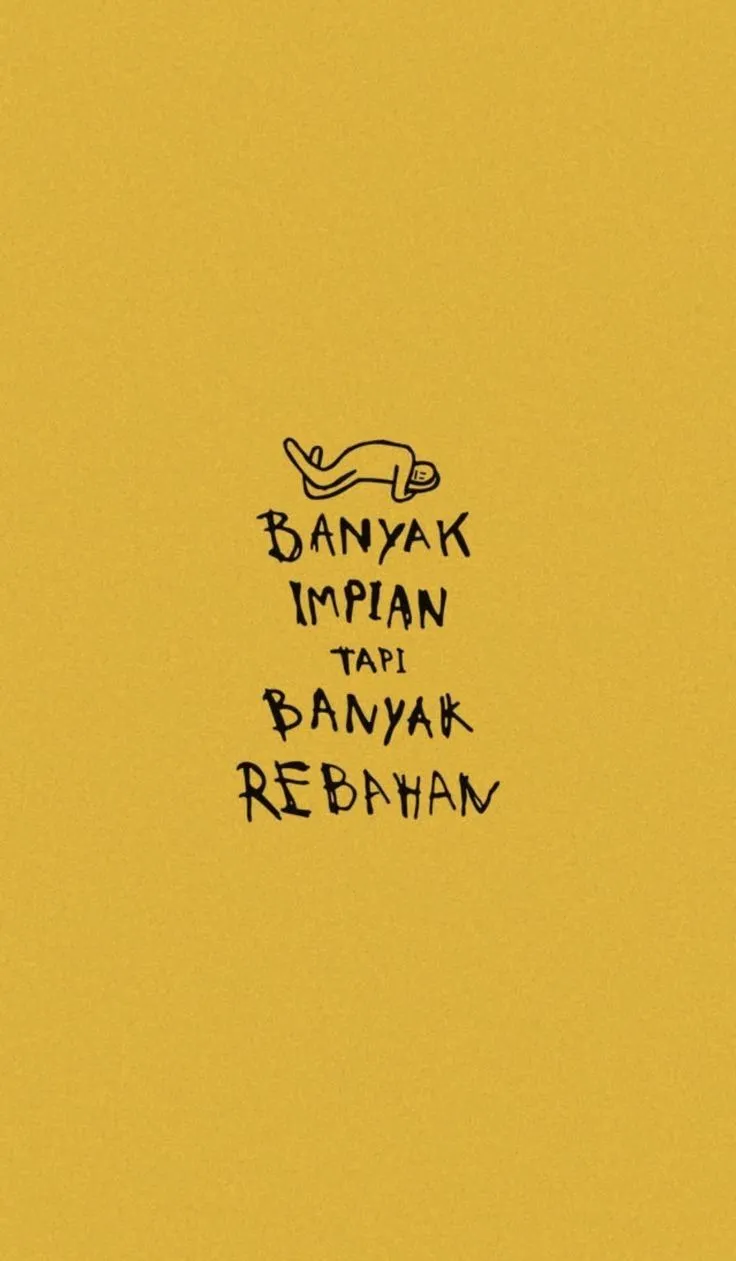 BANYAK
IMPIAN
TAPI
BANYAK
REBAHAN